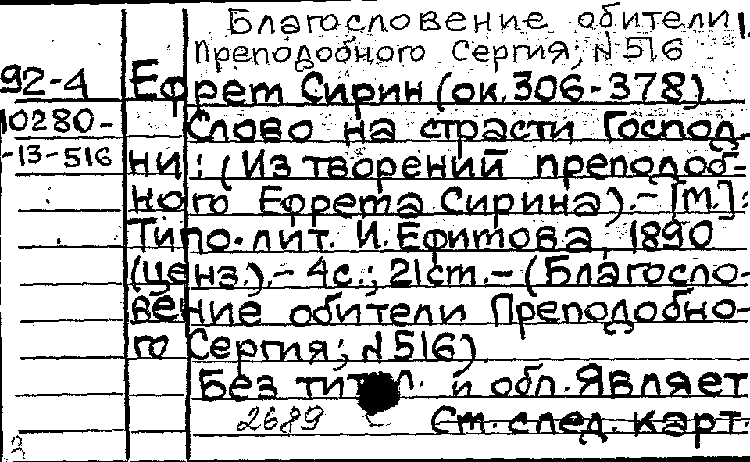 Благословение обители
Преподобного Сергия; N 516
92-4 Ефрет Сирин (ок. 306-378).
10280- Слово на страсти Господ-
-13-516 ни: (Из творений преподоб-
ного Ефрета Сирина). - [М.]:
Типо-лит. И. Ефитова, 1890
(ценз.). - 4с.; 21ст. - (Благосло-
вение обители Преподобно-
го Сергия; N 516)
Без титул. и обл. Являет
2689 Ст. след. карт.